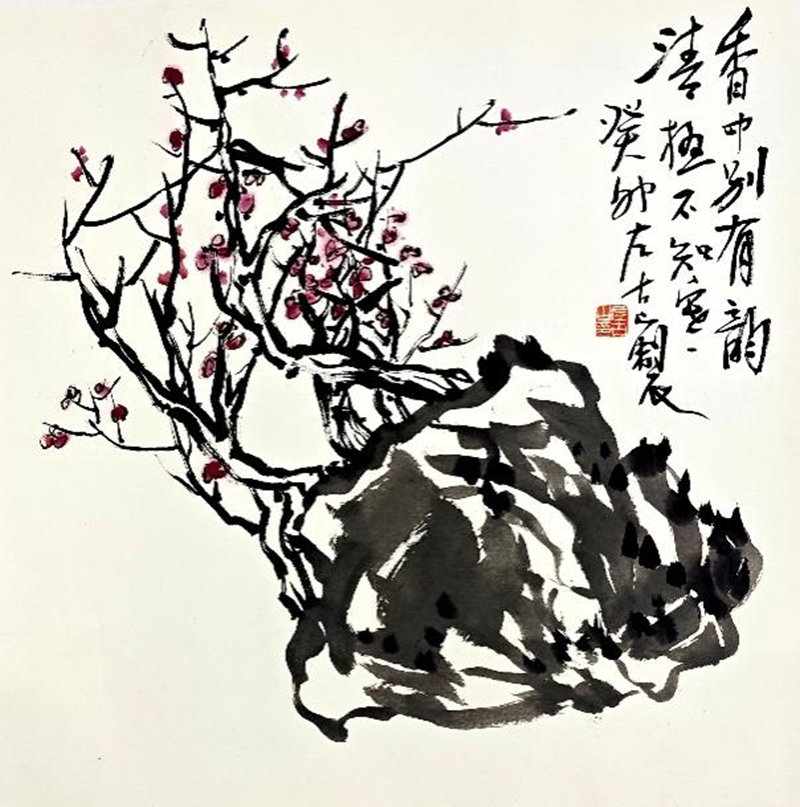 香中别有韵
清極不知寒
癸卯左古山製